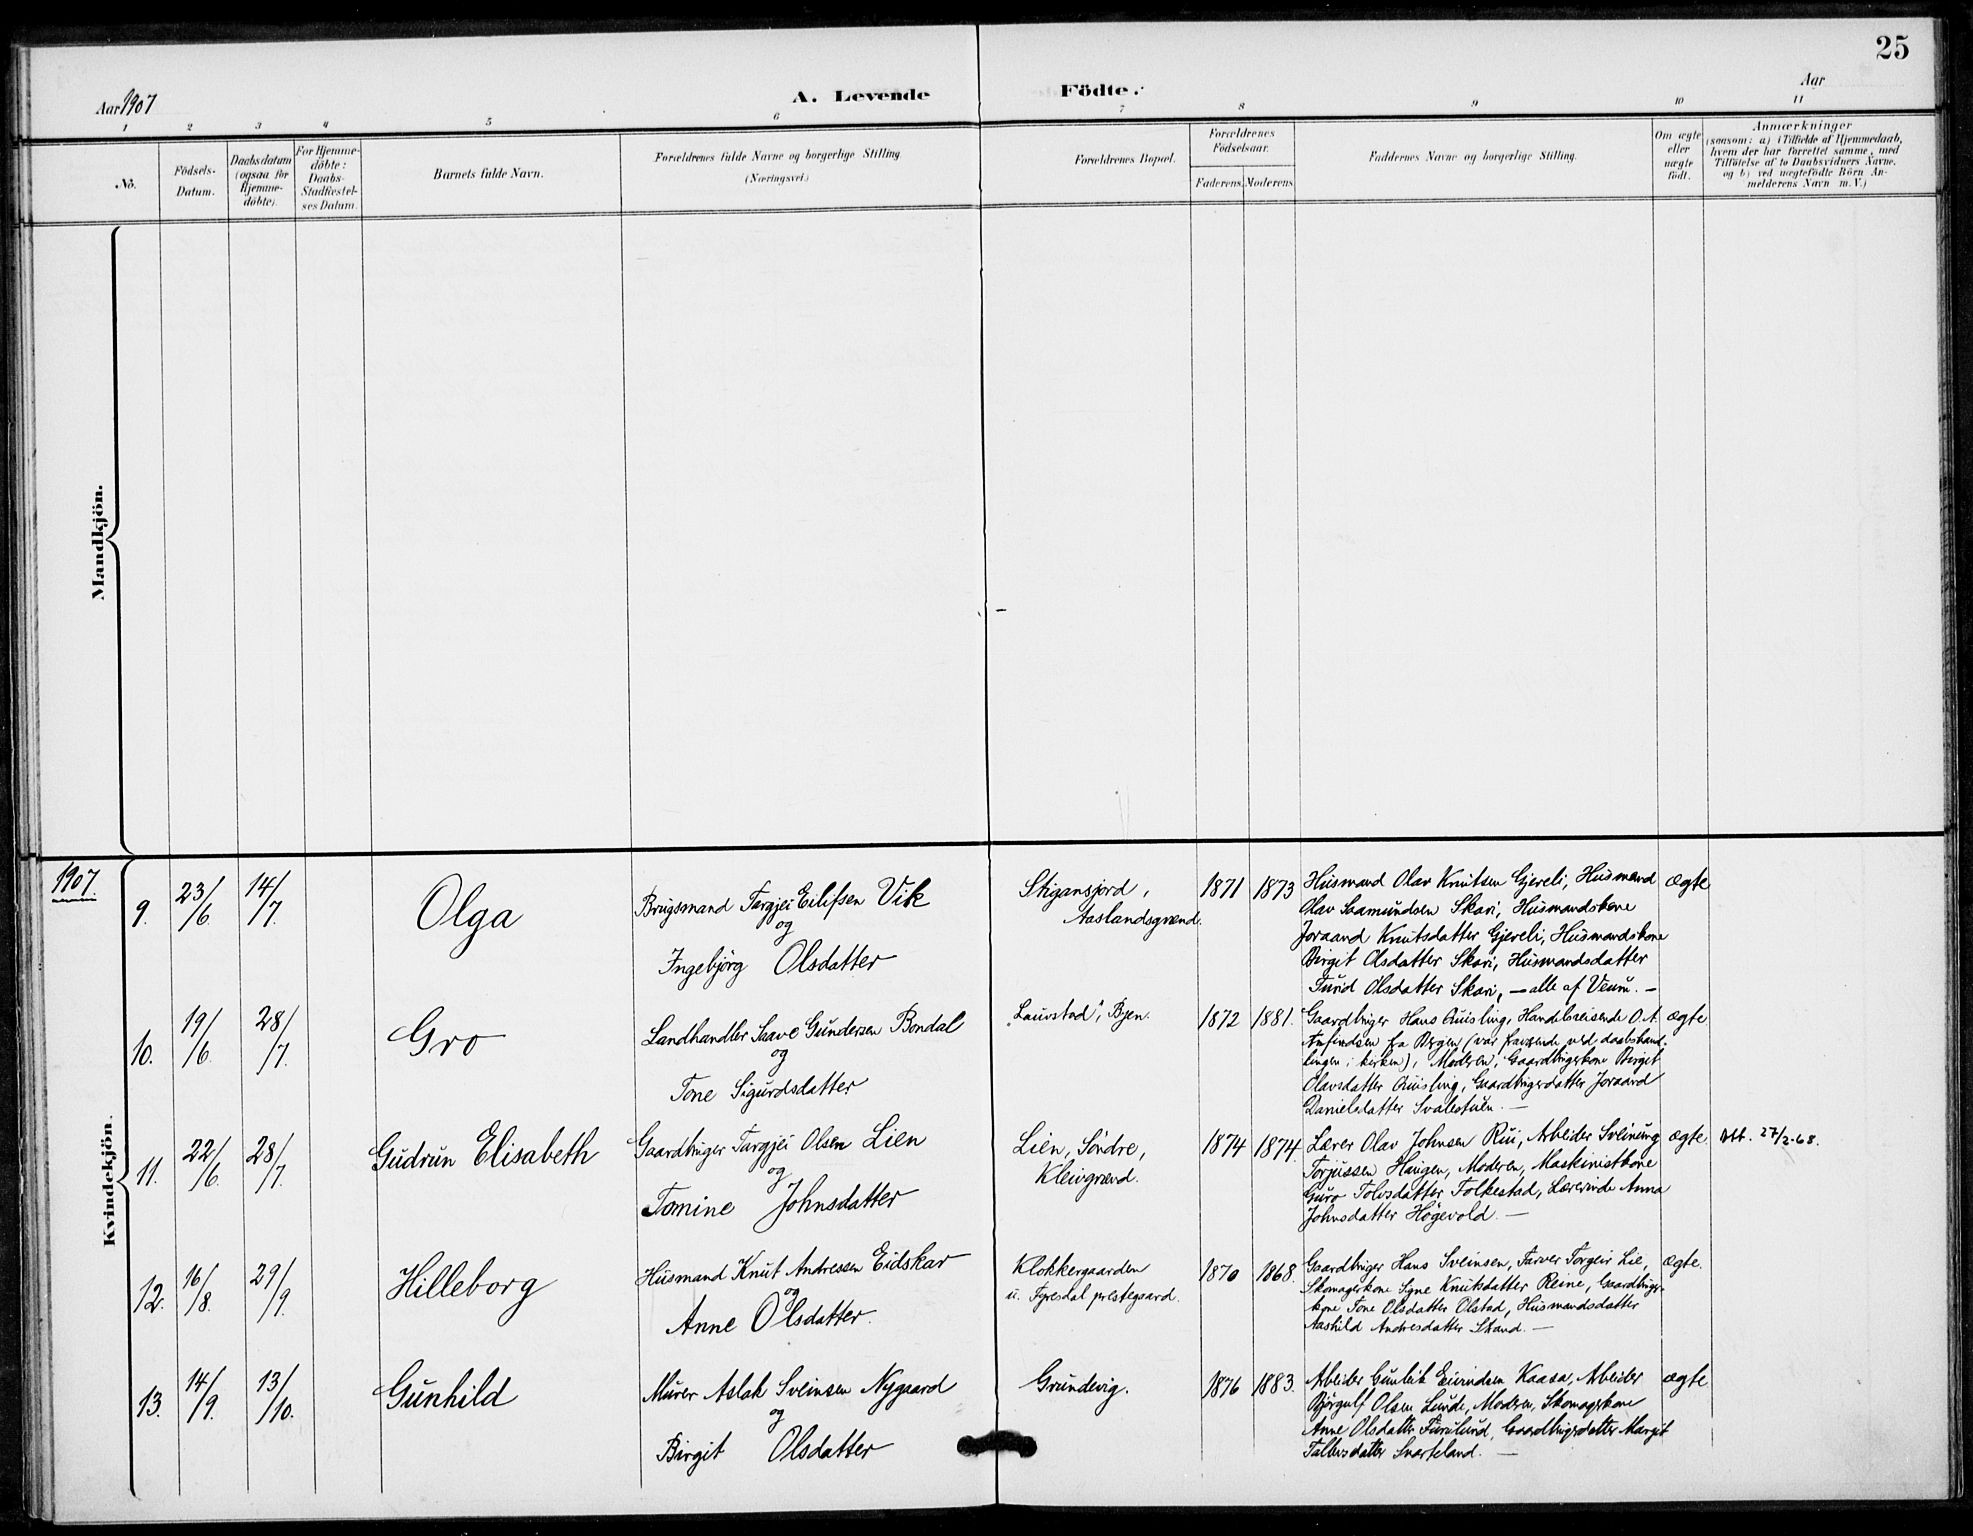 25
Aar 1907
A. Levende Födte.
Aar
1 2 3 4 5 6 7 8 9 10 11
No.
Födsels-Datum.
Daabsdatum (ogsaa for Hjemme-döbte).
For Hjemme-döbte: Daabs-Stadfæstel-ses Datum.
Barnets fulde Navn.
Forældrenes fulde Navne og borgerlige Stilling (Næringsvei.)
Forældrenes Bopæl.
Forældrenes Födselsaar.
Faderens. Moderens.
Faddernes Navne og borgerlige Stilling.
Om ægte eller uægte födt.
Anmærkninger
(saasom: a) i Tilfælde af Hjemmedaab,
hvem der har forrettet samme, med
Tilföielse af to Daabsvidners Navne.
og b) ved uægtefödte Börn An-
melderens Navn m. V.)
Mandkjön.
Kvindekjön.
1907.
9. 23/6 14/7. Olga
Brugsmand Targjei Eilifsen Vik
og
Ingebjörg Olsdatter
Stigansjord,
Aaslandsgrænd.
1871 1873
Husmand Olav Knutsen Gjereli, Husmand
Olav Saamundsen Skari, Husmandskone
Joraand Knutsdatter Gjereli, Husmandskone
Birgit Olsdatter Skari, Husmandsdatter
Turid Olsdatter Skari, — alle af Veum. —
ægte
10. 19/6. 28/7. Gro
Landhandler Saave Gundersen Bondal
og
Tone Sigurdsdatter
"Lauvstad", Byen.
1872 1881.
Gaardbruger Hans Quisling, Handelsreisende O.A.
Anfindsen fra Bergen (var fraværende ved daabshand-
lingen i kirken), Moderen, Gaardbrugerkone Birgit
Olavsdatter Quisling, Gaardbrugerdatter Joraand
Danielsdatter Svalestuen. —
ægte
11. 22/6. 28/7. Gudrun Elisabeth
Gaardbruger Targjei Olsen Lien
og
Tomine Johnsdatter
Lien, Söndre,
Kleivgrænd.
1874 1874.
Lærer Olav Johnsen Rui, Arbeider Sveinung
Torjussen Haugen, Moderen, Maskinistkone
Guro Tolvsdatter Folkestad, Lærerinde Anna
Johnsdatter Högevold. —
ægte
Att. 27/2-68.
12. 16/8. 29/9. Hilleborg
Husmand Knut Andressen Eidskar
og
Anne Olsdatter.
Klokkergaarden
u. Fyresdal prestegaard.
1870 1868.
Gaardbruger Hans Sveinsen, Farver Torgeir Lie,
Skomagerkone Signe Knutsdatter Reine, Gaardbruger-
kone Tone Olsdatter Olstad, Husmandsdatter
Aashild Andresdatter Skaud. —
ægte.
13. 14/9. 13/10. Gunhild
Murer Aslak Sveinsen Nygaard
og
Birgit Olsdatter
Grundevig.
1876 1883.
Arbeider Gunleik Eivindsen Kaasa, Arbeider
Björgulf Olsen Lunde, Moderen, Skomagerkone
Anne Olsdatter Furulund, Gaardbrugerdatter Margit
Talleivsdatter Svarteland. —
ægte